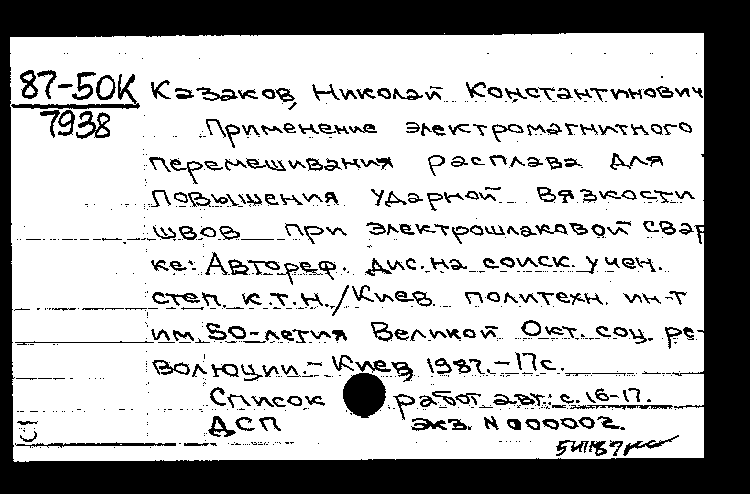 87-50К Казаков, Николай Константинович
7938 Применение электромагнитного
перемешивания расплава для
повышения ударной вязкости
швов при электрошлаковой свар
ке: Автореф. дис. на соиск. учен.
степ. к.т.н. / Киев политехн. ин-т
им. 50-летия Великой Окт. соц. ре-
волюции. – Киев, 1987. – 17с.
Список работ авт.: с. 16-17.
ДСП экз. N 000002.